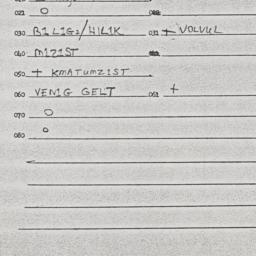 021 O
030 BILIG2/HILIK 031 + VOLVUL
040 MIZIST
050 + KMATUMZIST
060 VENIG GELT 061 +
070 O
080 O